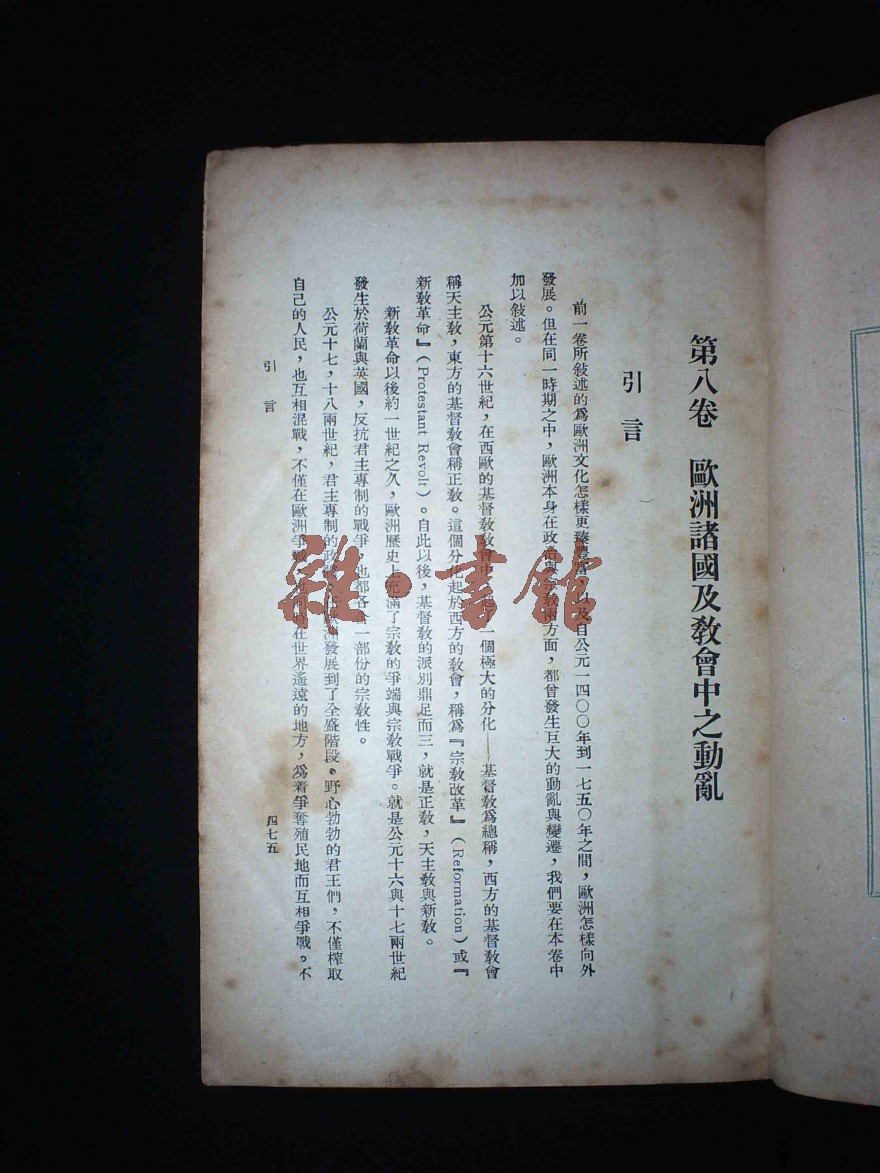 第八卷 歐洲諸國及敎會中之動亂
引言
前一卷所敍述的爲歐洲文化怎樣更臻豐富,以及自公元一四〇〇年到一七五〇年之間,歐洲怎樣向外
發展。但在同一時期之中,歐洲本身在政治與宗敎兩方面,都曾發生巨大的動亂與變遷,我們要在本卷中
加以敍述。
公元第十六世紀,在西歐的基督敎敎會中 一個極大的分化——基督敎爲總稱,西方的基督敎會
稱天主敎,東方的基督敎會稱正敎。這個分化起於西方的敎會,稱爲『宗敎改革』(Reformation)或『
新敎革命』(Protestant Revolt)。自此以後,基督敎的派別鼎足而三,就是正敎,天主敎與新敎。
新敎革命以後約一世紀之久,歐洲歷史上充滿了宗敎的爭端與宗敎戰爭。就是公元十六與十七兩世紀
發生於荷蘭與英國,反抗君主專制的戰爭,也都各 一部份的宗敎性。
公元十七,十八兩世紀,君主專制的政 洲發展到了全盛階段。野心勃勃的君王們,不僅榨取
自己的人民,也互相混戰,不僅在歐洲爭戰, 在世界遙遠的地方,爲着爭奪殖民地而互相爭戰。不
引言
四七五
雜·書館